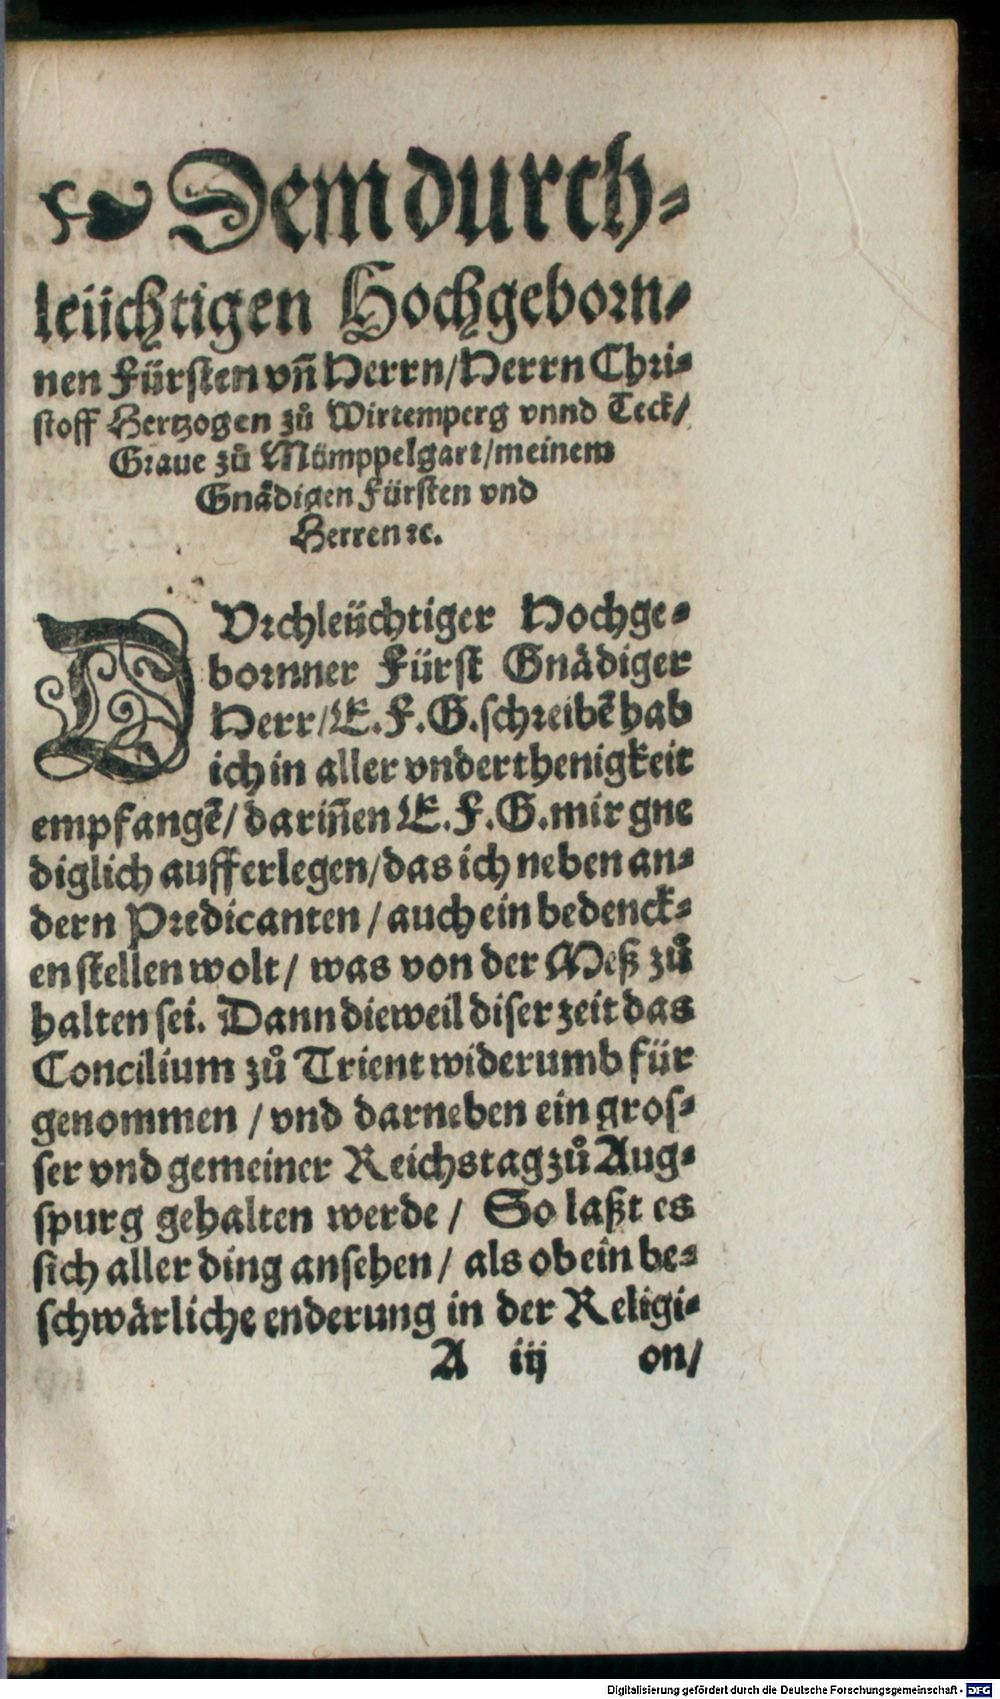 ☙ Dem durch-
leüchtigen Hochgeborn-
nen Fürsten vñ Herrn/Herrn Chri-
stoff Hertzogen zů Wirtemperg vnnd Teck/
Graue zů Mümppelgart/meinem
Gnädigen Fürsten vnd
Herren ꝛc.
DVrchleüchtiger Hochge-
bornner Fürst Gnädiger
Herr/E.F.G.schreibẽ hab
ich in aller vnderthenigkeit
empfangẽ/ dariñen E.F.G.mir gne
diglich aufferlegen/das ich neben an-
dern Predicanten /auch ein bedenck-
en stellen wolt/ was von der Meß zů
halten sei. Dann dieweil diser zeit das
Concilium zů Trient widerumb für
genommen /vnd darneben ein gros-
ser vnd gemeiner Reichstag zů Aug-
spurg gehalten werde / So laßt es
sich aller ding ansehen/ als ob ein be-
schwärliche enderung in der Religi-
A iij on/
Digitalisierung gefördert durch die Deutsche Forschungsgemeinschaft - DFG